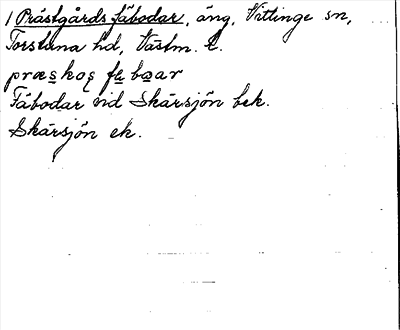 1 Prästgårds fäbodar, äng, Vittinge sn,
Torstuna hd, Västm. l.
præskos fæboar
Fäbodar vid Skärsjön bek.
Skärsjön ek.